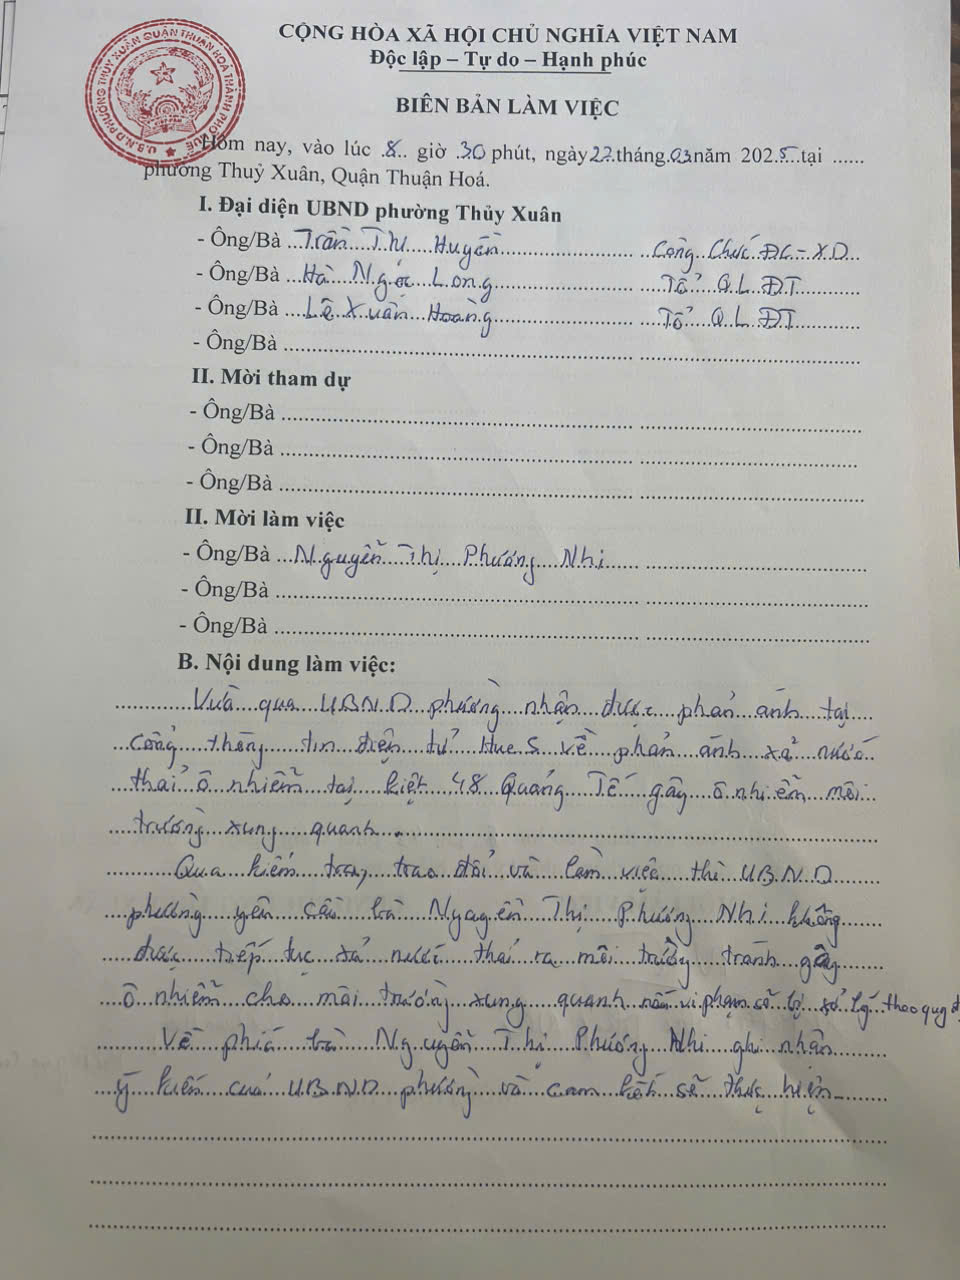 CỘNG HÒA XÃ HỘI CHỦ NGHĨA VIỆT NAM
Độc lập – Tự do – Hạnh phúc
BIÊN BẢN LÀM VIỆC
U.B.N.D PHƯỜNG THUỶ XUÂN QUẬN THUẬN HOÁ THÀNH PHỐ HUẾ
Hôm nay, vào lúc 8 giờ 30 phút, ngày 22 tháng 03 năm 2025 tại ......
phường Thuỷ Xuân, Quận Thuận Hoá.
I. Đại diện UBND phường Thủy Xuân
- Ông/Bà Trần Thị Huyền Công Chức ĐC-XD
- Ông/Bà Hà Ngọc Long Tổ QLĐT
- Ông/Bà Lê Xuân Hoàng Tổ QLĐT
- Ông/Bà
II. Mời tham dự
- Ông/Bà
- Ông/Bà
- Ông/Bà
II. Mời làm việc
- Ông/Bà Nguyễn Thị Phương Nhi
- Ông/Bà
- Ông/Bà
B. Nội dung làm việc:
Vừa qua UBND phường nhận được phản ánh tại
Cổng thông tin điện tử Hue S về phản ánh xả nước
thải ô nhiễm tại kiệt 48 Quảng Tế gây ô nhiễm môi
trường xung quanh.
Qua kiểm tra, trao đổi và làm việc thì UBND
phường yêu cầu bà Nguyễn Thị Phương Nhi không
được tiếp tục xả nước thải ra môi trường tránh gây
ô nhiễm cho môi trường xung quanh nếu vi phạm sẽ bị xử lý theo quy đ
Về phía bà Nguyễn Thị Phương Nhi ghi nhận
ý kiến của UBND phường và cam kết sẽ thực hiện